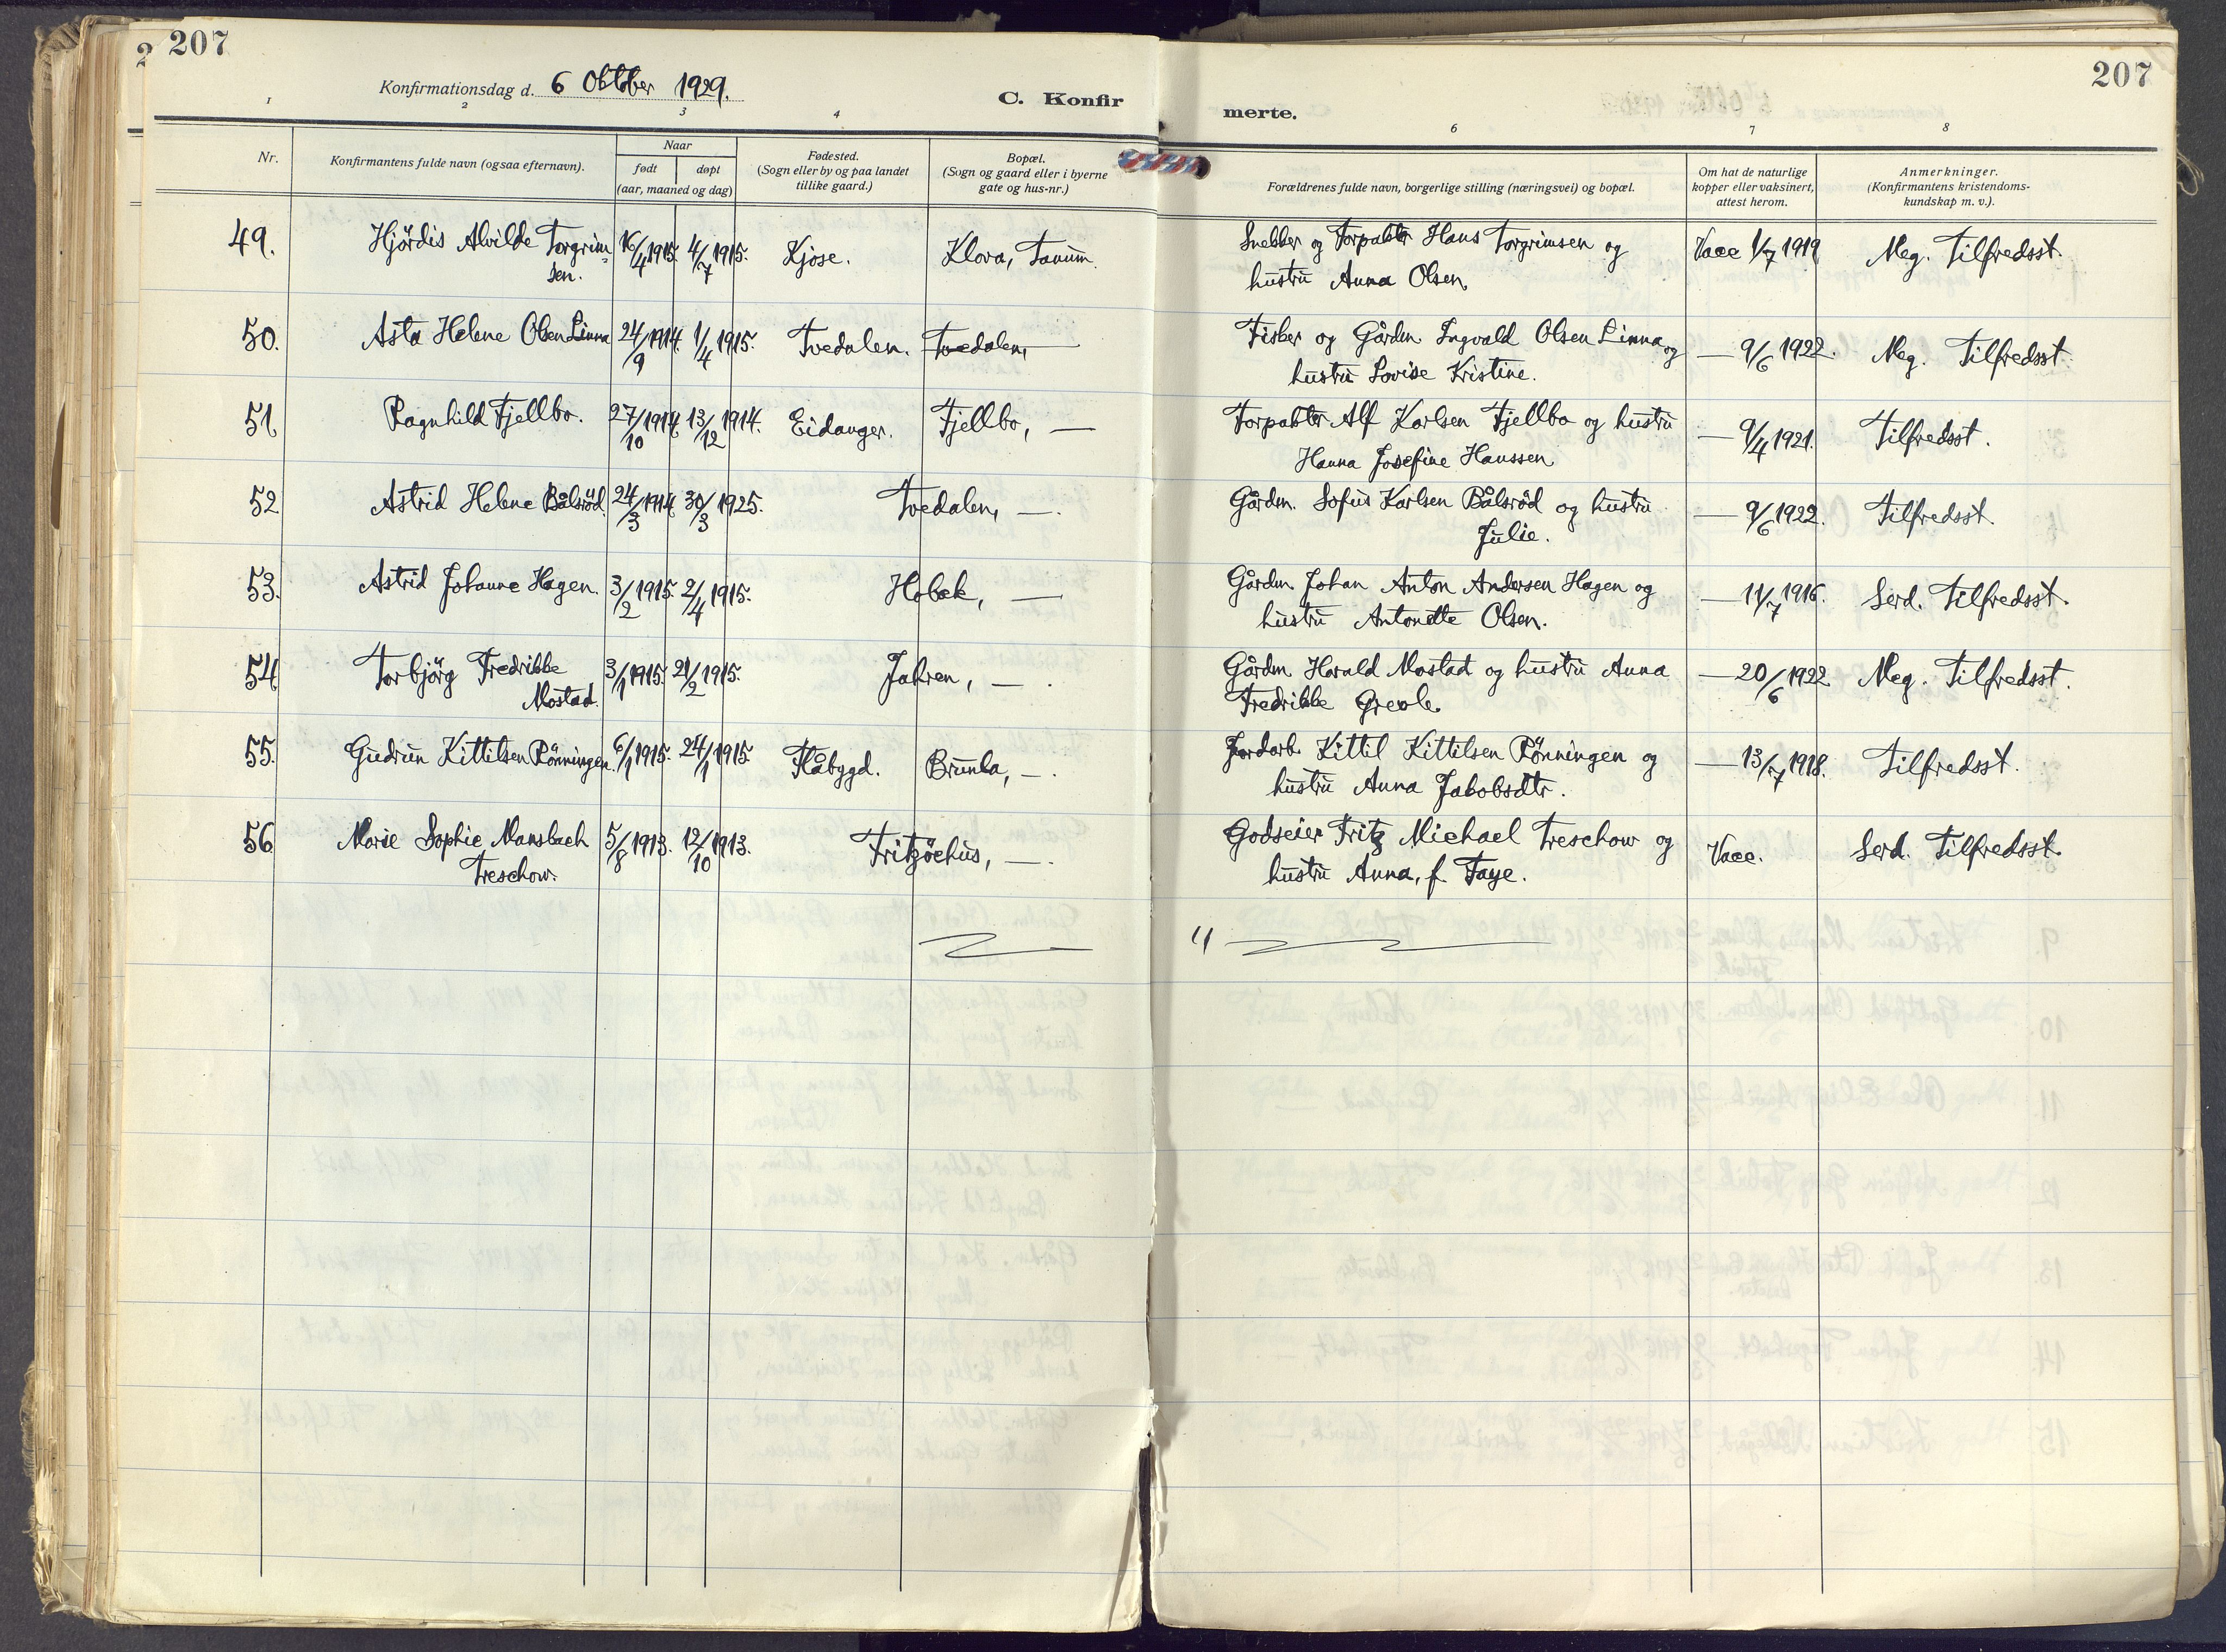 207
207
Konfirmationsdag d. 6 Oktober 1929.
C. Konfirmerte.
1 2 3 4 6 7 8
Nr.
Konfirmantens fulde navn (ogsaa efternavn).
Naar
født døpt
(aar, maaned og dag)
Fødested.
(Sogn eller by og paa landet
tillike gaard.)
Bopæl.
(Sogn og gaard eller i byerne
gate og hus-nr.)
Forældrenes fulde navn, borgerlige stilling (næringsvei) og bopæl.
Om hat de naturlige
kopper eller vaksinert,
attest herom.
Anmerkninger.
(Konfirmantens kristendoms-
kundskap m. v.).
49. Hjördis Alvilde Torgrim- 16/4 1915. 4/7 1915. Kjose. Klova, Tanum. Snekker og Forpakter Hans Torgrimsen og Vacc 1/7 1919 Meg. Tilfredsst.
sen. hustru Anna Olsen
50. Asta Helene Olsen Linna 24/9 1914. 1/4 1915. Tvedalen. Tvedalen, — Fisker og Gårdm. Ingvald Olsen Linna og — 9/6 1922. Meg. Tilfredsst.
hustru Lovise Kristine.
51. Ragnhild Fjellbo. 27/10 1914. 13/12 1914. Eidanger. Fjellbo, — Forpakter Alf Karlsen Fjellbo og hustru — 9/4 1921. Tilfredsst.
Hanna Josefine Hanssen
52 Astrid Helene Bålsröd. 24/3 1914 30/3 1925. Tvedalen, —. Gårdm. Sofus Karlsen Bålsröd og hustru — 9/6 1922. Tilfredsst.
Julie.
53. Astrid Johanne Hagen. 3/2 1915. 2/4 1915. Hobæk, — Gårdm Johan Anton Andersen Hagen og — 11/7 1916. Serd. Tilfredsst.
hustru Antonette Olsen.
54 Torbjörg Fredrikke 3/1 1915. 21/2 1915. Jahren, —. Gårdm Harald Mostad og hustru Anna — 20/6 1922 Meg. Tilfredsst.
Mostad. Fredrikke Grevle.
55. Gudrun Kittilsen Rönningen. 6/1 1915. 24/1 1915. Flåbygd. Brunla, —. Jordarb. Kittil Kittilsen Rönningen og — 13/7 1918. Tilfredsst.
hustru Anna Jakobsdtr.
56 Marie Sophie Mansbach 5/8 1913. 12/10 1913. Fritzöehus, —. Godseier Fritz Michael Treschow og Vacc. Serd. Tilfredsst.
Treschow. hustru Anna, f. Faye.